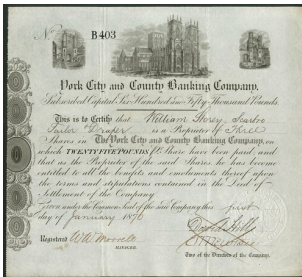 No B403
York City and County Banking Company.
Subscribed Capital Six Hundred and Fifty Thousand Pounds.
This is to Certify that William Storey
Tailor & Draper is a Proprietor of Three
Shares in The York City and County Banking Company, on
which TWENTY FIVE POUNDS per Share have been paid, and
that as the Proprietor of the said Shares he has become
entitled to all the benefits and emoluments thereof upon
the terms and stipulations contained in the Deed of
Settlement of the Company.
Given under the Common Seal of the said Company this first
day of January 1876
Registered
MANAGER.
Two of the Directors of the Company.